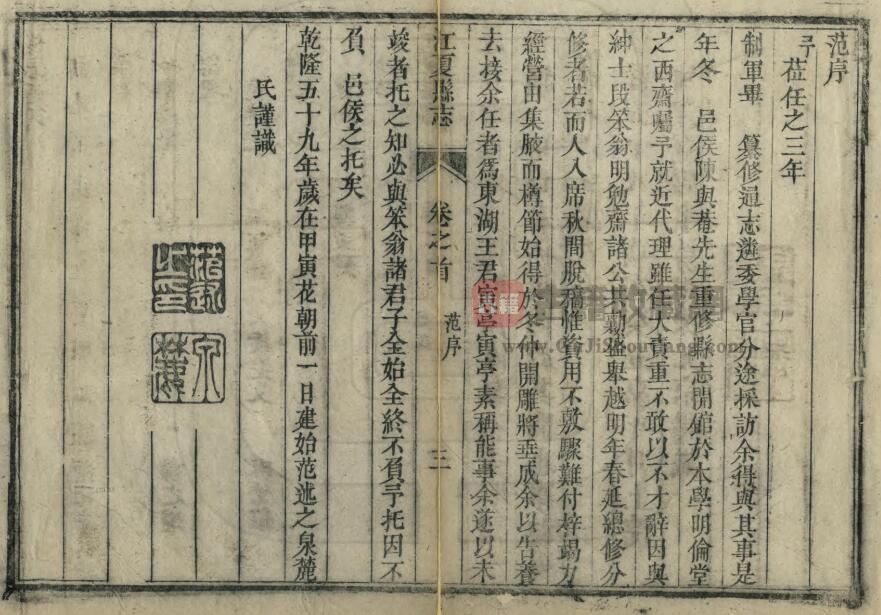 范序
予莅任之三年
制軍畢　纂修通志遴委學官分途採訪余得與其事是
年冬　邑侯陳與菴先生重修縣志開館於本學明倫堂
之西齋囑予就近代理雖任大責重不敢以不才辭因與
紳士段笨翁明勉齋諸公共勷盛舉越明年春延總修分
修者若而人入席秋間脫稿惟資用不敷驟難付梓竭力
經營由集腋而樽節始得於冬仲開雕將垂成余以告養
去接余任者爲東湖王君寅亭寅亭素稱能事余遂以未
江夏縣志　卷之首　范序　三
竣者托之知必與笨翁諸君子全始全終不負予托因不
負　邑侯之托矣
乾隆五十九年歲在甲寅花朝前一日建始范述之泉麓
氏謹識
范述之印
泉麓
www.GuJiShouCang.com